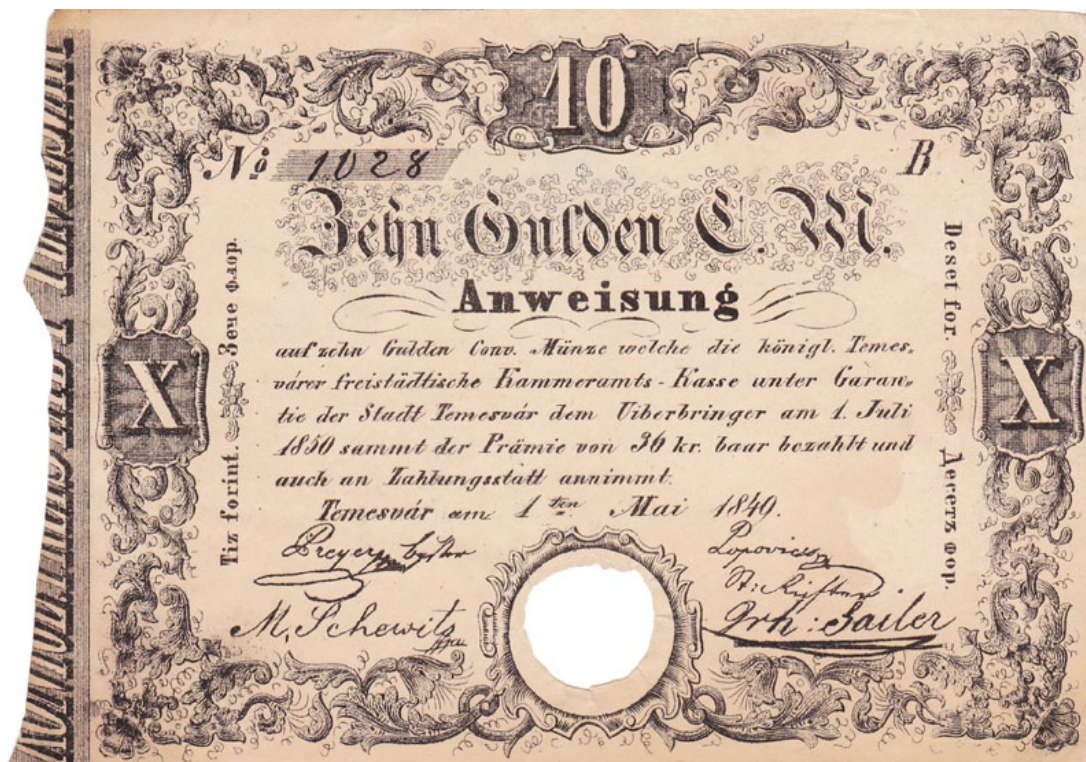 10
No 1028
B
Zehn Gulden C. M.
Anweisung
auf zehn Gulden Conv. Münze welche die königl. Temes-
várer freistädtische Kammeramts-Kasse unter Garan-
tie der Stadt Temesvár dem Uiberbringer am 1. Juli
1850 sammt der Prämie von 36 kr. baar bezahlt und
auch an Zahlungsstatt annimmt.
Temesvár am 1ten Mai 1849.
Preyer
Popovics
M. Schewitz
Sailer
X
X
Tiz forint. Зече флор.
Deset for.
фор.